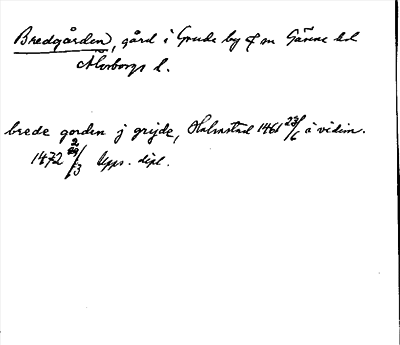 Bredgården, gård i Grude by o sn Gäsene hd
Älvsborgs l.
brede gorden j gryde, Halmstad 1461 23/6 i vidim.
1472 29/3 Upps. dipl.